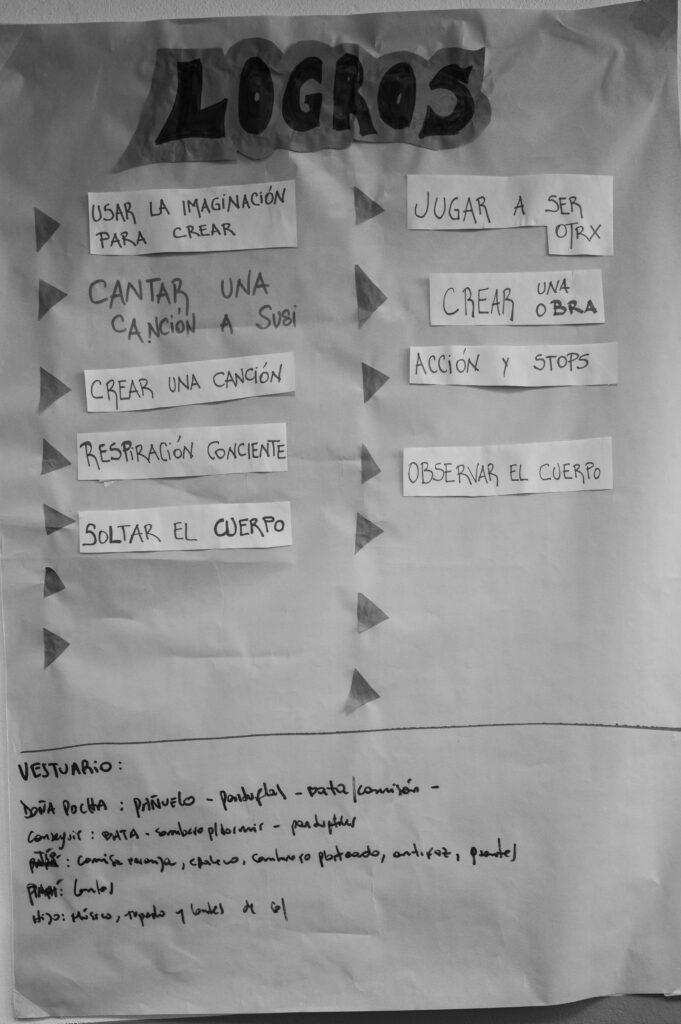 LOGROS
USAR LA IMAGINACIÓN
PARA CREAR
CANTAR UNA
CANCIÓN A SUSI
CREAR UNA CANCIÓN
RESPIRACIÓN CONCIENTE
SOLTAR EL CUERPO
JUGAR A SER
OTRX
CREAR UNA
OBRA
ACCIÓN Y STOPS
OBSERVAR EL CUERPO
VESTUARIO:
DOÑA POCHA: PAÑUELO - pantuflas - BATA/camisón -
Conseguir: BATA - sombrero p/dormir - pantuflas
: camisa naranja, chaleco, sombrero plateado, antifaz, guantes
: lentes
HIJO: y lentes de sol